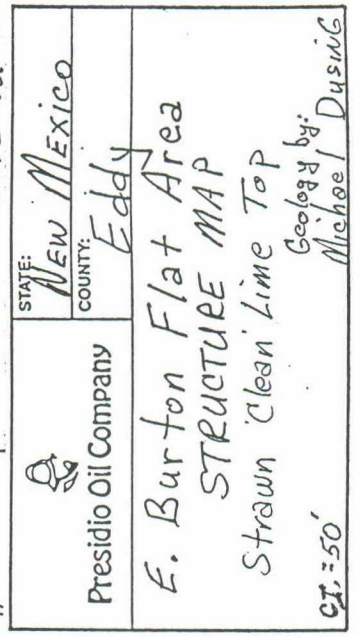 Presidio Oil Company
STATE:
NEW MEXICO
COUNTY:
Eddy
E. Burton Flat Area
STRUCTURE MAP
Strawn 'Clean' Lime Top
Geology by:
Michael DUSING
C.I. = 50'